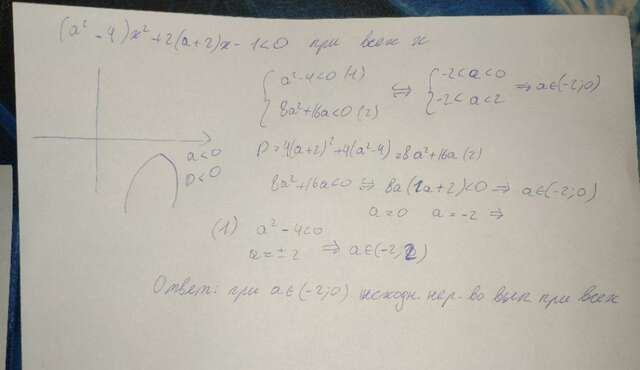 (a² - 4)x² + 2(a+2)x - 1 < 0 при всех x
{ a² - 4 < 0 (1) ⇔ { -2 < a < 0 ⇒ a ∈ (-2; 0)
8a² + 16a < 0 (2) -2 < a < 2
a < 0
D < 0
D = 4(a+2)² + 4(a² - 4) = 8a² + 16a (2)
8a² + 16a < 0 ⇒ 8a(1a + 2) < 0 ⇒ a ∈ (-2; 0)
a = 0 a = -2 ⇒
(1) a² - 4 < 0
a = ± 2 ⇒ a ∈ (-2; 2)
Ответ: при a ∈ (-2; 0) исходн. нер-во вып при всех